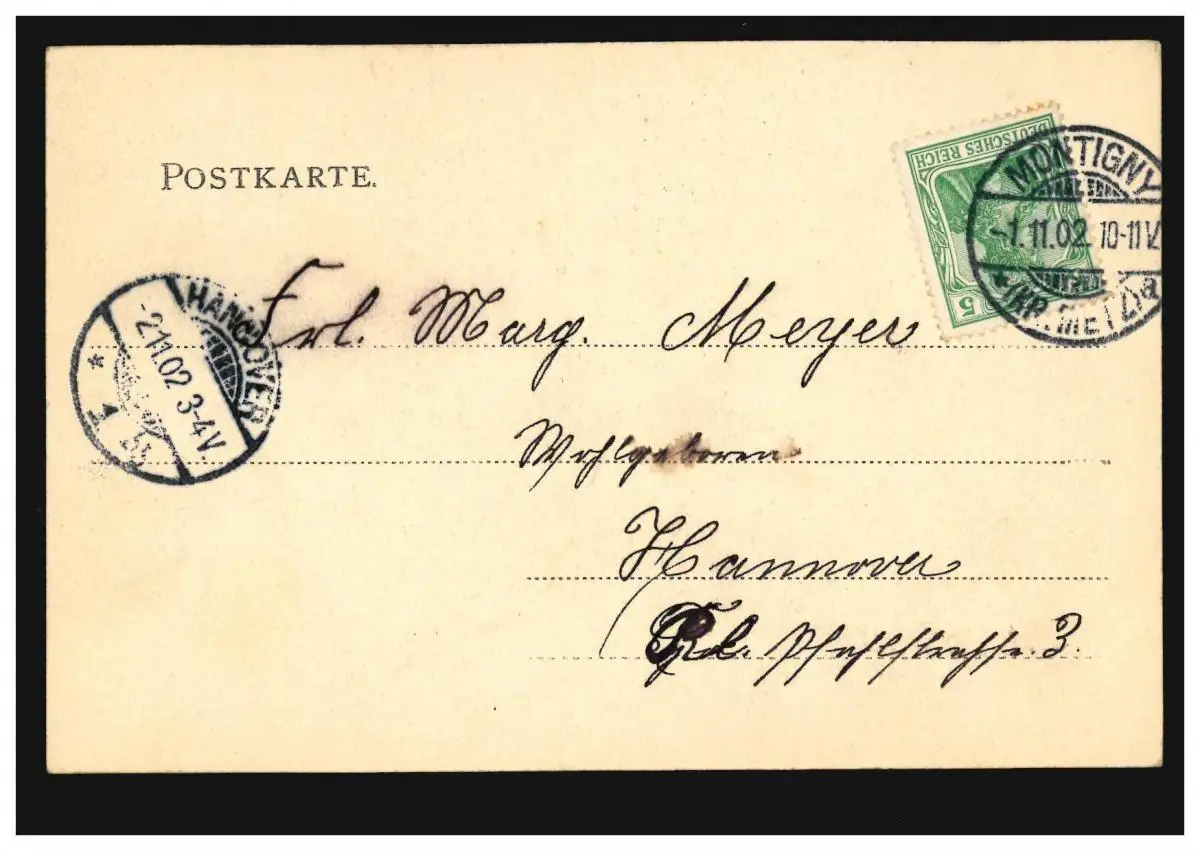 POSTKARTE.
DEUTSCHES REICH
5
MONTIGNY
-1.11.02. 10-11V.
* (KR. METZ) a
HANNOVER
-2.11.02 3-4V
* 1
Frl. Marg. Meyer
Wohlgeboren
Hannover
Pfahlstrasse. 3.